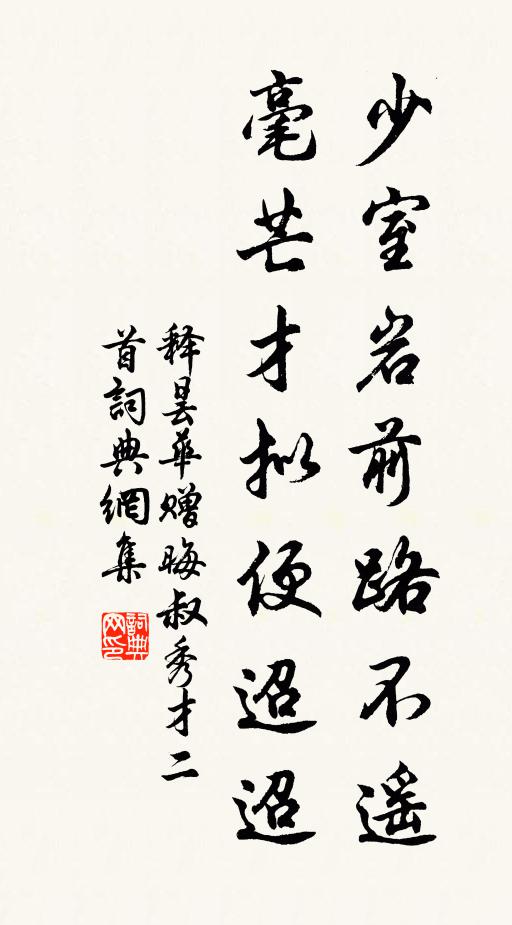 少室岩前路不遥
毫芒才拟便迢迢
释昙华赠晦叔秀才二
首詞典網集
詞典网印